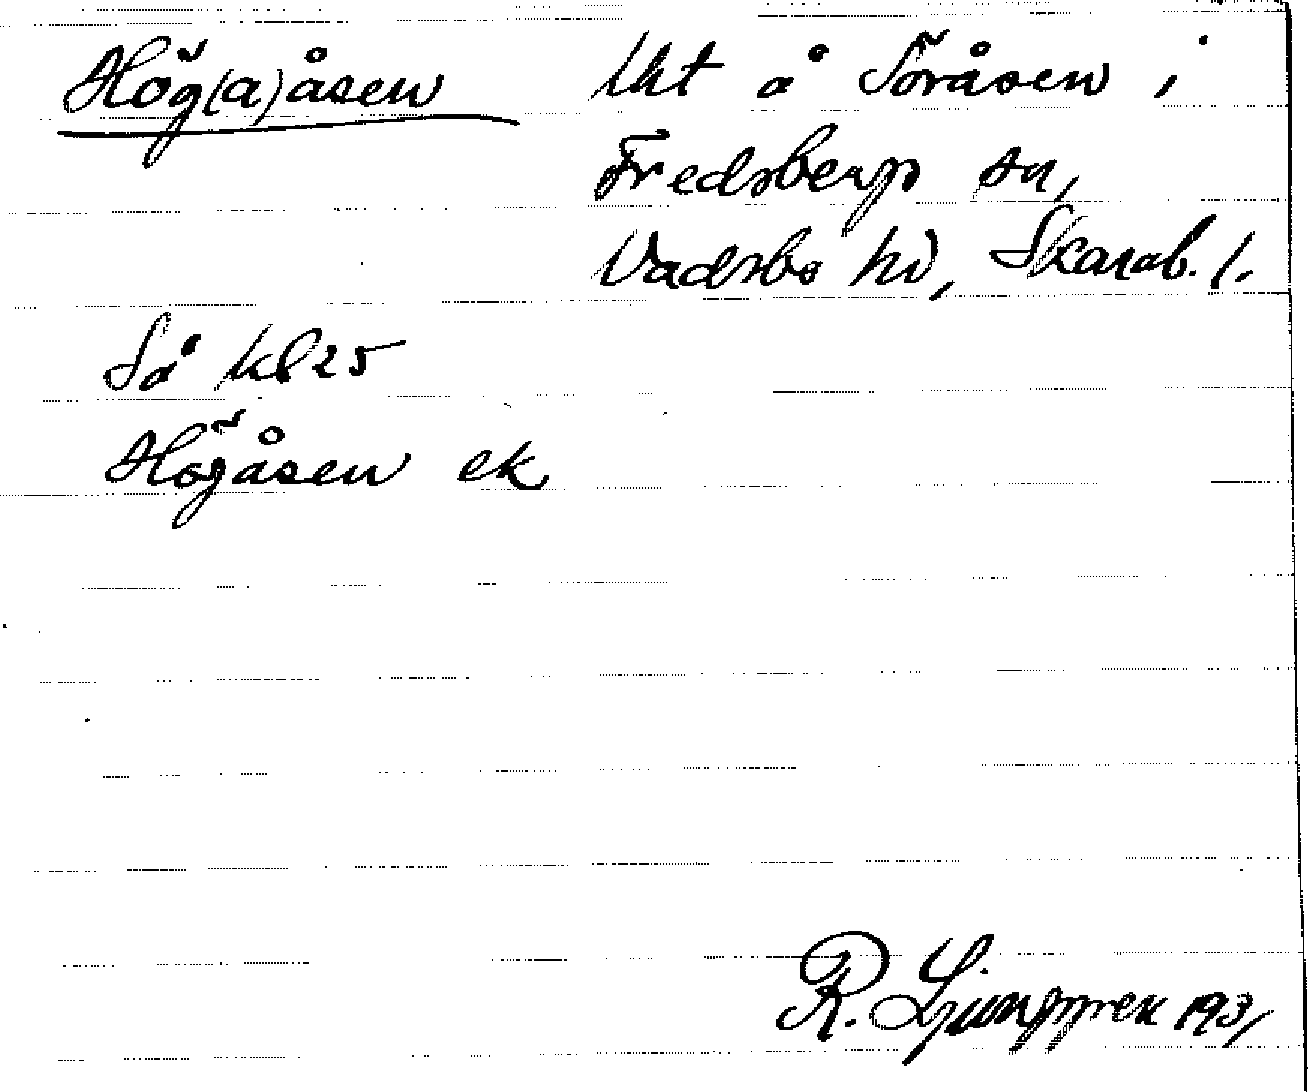 Hög(a)åsen Utt å Töråsen i
Fredsbergs sn,
Vadsbo hd, Skarab. l.
Så kl 25
Högåsen ek
R. Ljunggren 1931